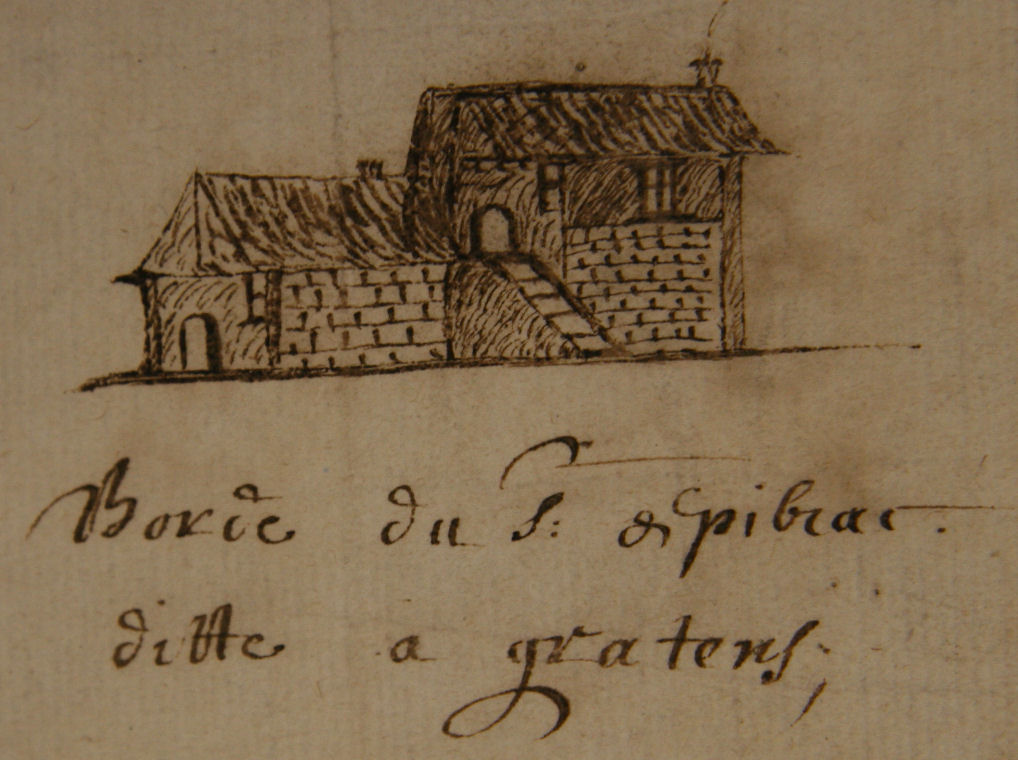 Borde du S: de pibrac.
ditte a gratens;